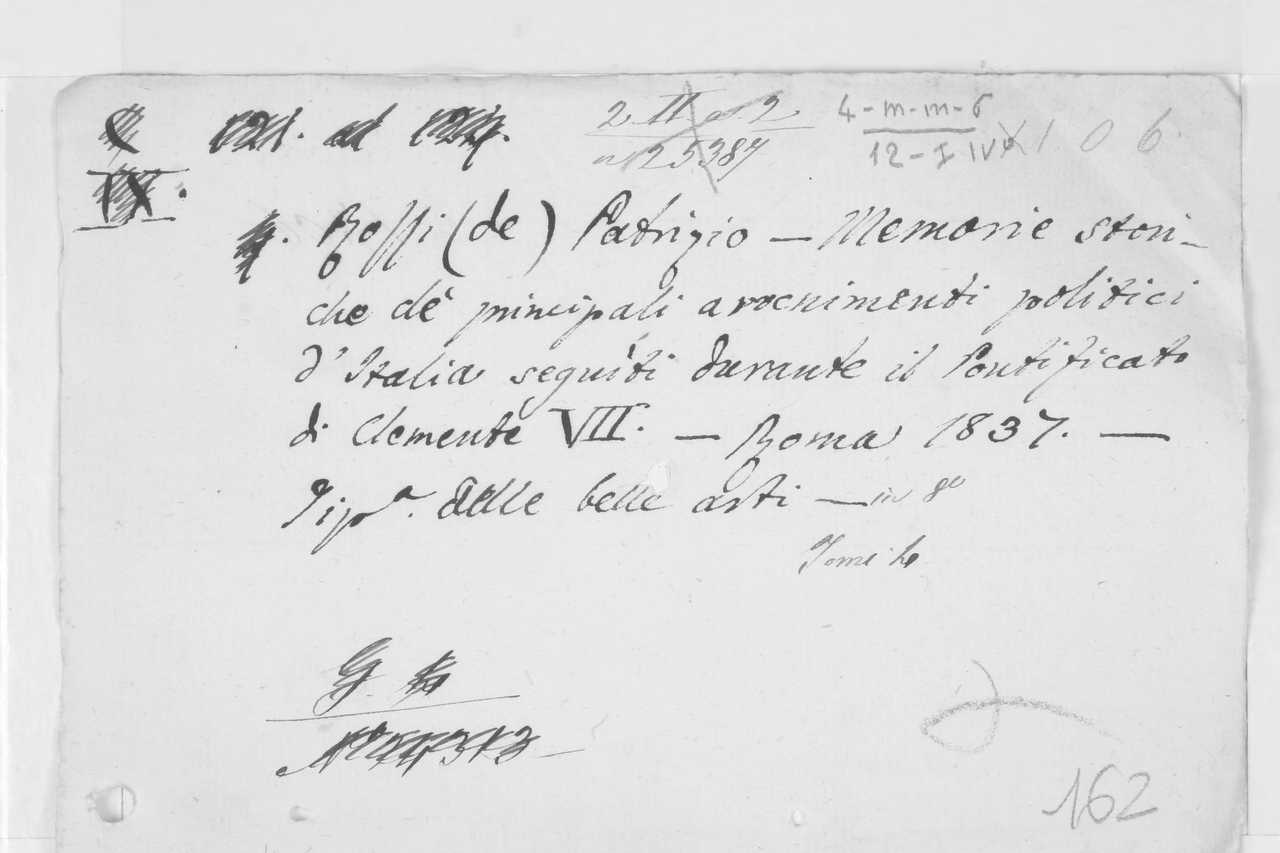 ad 2 II 2 4-m-m-6
IX. 25387 12-I IV 106
Rossi (de) Patrizio — Memorie stori-
che de' principali avvenimenti politici
d'Italia seguiti durante il Pontificato
di Clemente VII. — Roma 1837. —
Tipª. delle belle arti — in 8º
Tomi 4
G
162